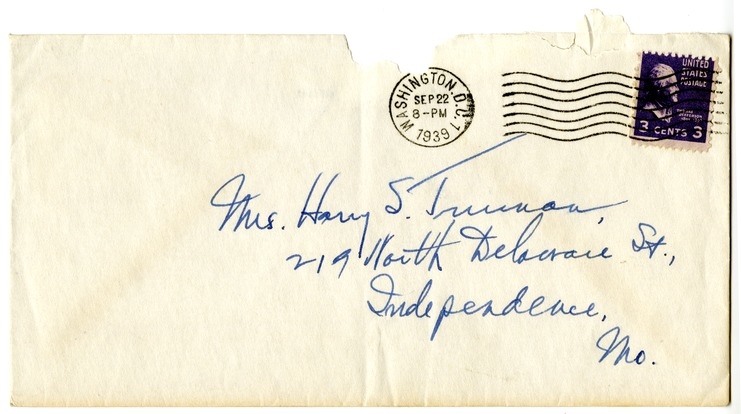 WASHINGTON, D.C. 1
SEP 22
8-PM
1939
UNITED
STATES
POSTAGE
3 CENTS 3
Mrs. Harry S. Truman,
219 North Delaware St.,
Independence,
Mo.